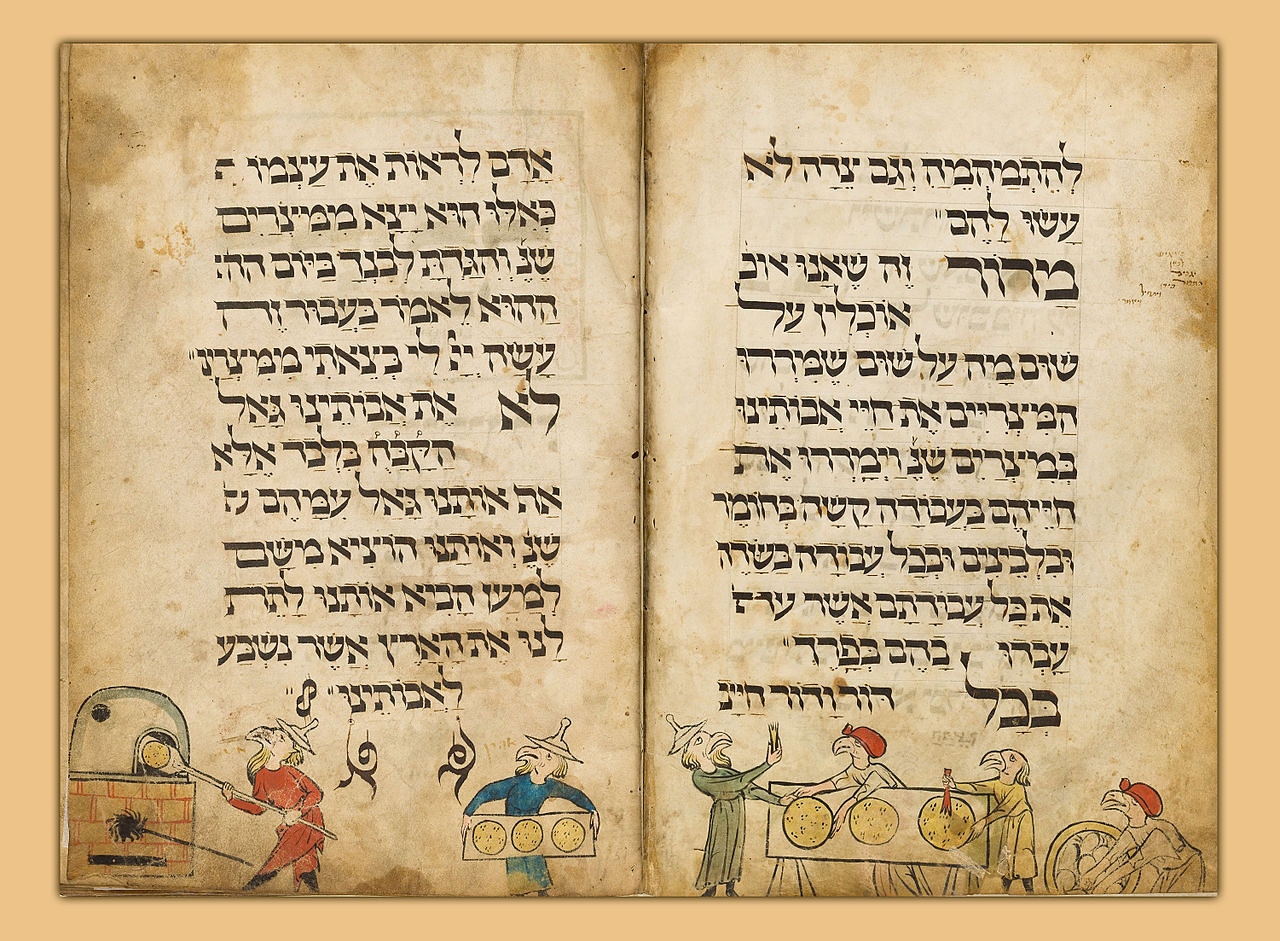 להתמהמה וגם צדה לא
עשו להם״
מרור זה שאנו אוכ
אוכלין על
שום מה על שום שמררו
המצריים את חיי אבותינו
במצרים שנ׳ וימררו את
חייהם בעבודה קשה בחומר
ובלבינים ובכל עבודה בשדה
את כל עבודתם אשר
עבדו בהם בפרך״
בכל דור ודור חייב
אדם לראות את עצמו
כאלו הוא יצא ממצרים
שנ׳ והגדת לבנך ביום הה
ההוא לאמר בעבור זה
עשה יי׳ לי בצאתי ממצרים״
לא את אבותינו גאל
הקבה בלבד אלא
את אותנו גאל עמהם
שנ׳ ואותנו הוציא משם
למען הביא אותנו לתת
לנו את הארץ אשר נשבע
לאבותינו״